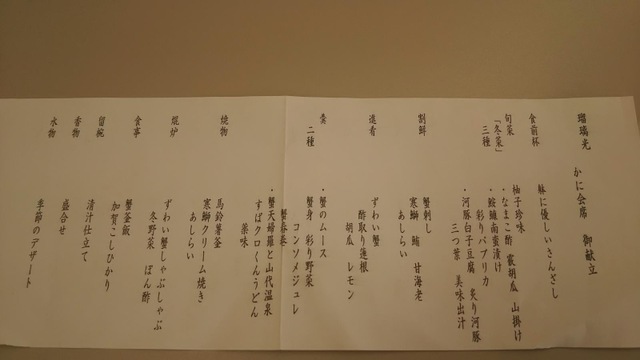 瑠璃光 かに会席 御献立
食前杯 躰に優しいさんざし
旬菜「冬菜」三種
柚子珍味
・なまこ酢 霰胡瓜 山掛け
・鮟鱇南蛮漬け
彩りパプリカ 炙り河豚
・河豚白子豆腐
三つ葉 美味出汁
割鮮 蟹刺し
寒鰤 鮪 甘海老
あしらい
進肴 ずわい蟹
酢取り蓮根
胡瓜 レモン
二種
・蟹のムース
蟹身 彩り野菜
コンソメジュレ
蟹春巻
・蟹天婦羅と山代温泉
すぱクロくんうどん
薬味
焼物 馬鈴薯釜
寒鰤クリーム焼き
あしらい
焜炉 ずわい蟹しゃぶしゃぶ
冬野菜 ぽん酢
食事 蟹釜飯
加賀こしひかり
留椀 清汁仕立て
香物 盛合せ
水物 季節のデザート